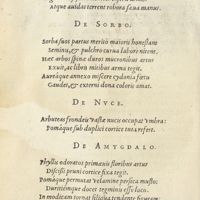 Atque auidas terrent robora fæua manus.
DE SORBO.
Sorba suos partus merito maioris honestam
Seminis, & pulchro curua labore nitent.
Hæc arbos signa duros mucronibus artus
Exuit, ac libris mitibus arma tegit.
Aureáque annexo miscere cydonia fœtu
Gaudet, & externi dona coloris amat.
DE NVCE.
Arbuteas frondeis vastæ nucis occupat vmbra:
Pomáque sub duplici cortice tuta refert.
DE AMYGDALO.
Phyllis odoratos primæuis floribus artus
Discissi pruni cortice fixa tegit.
Pomáque permutat velamine persica musto:
Duritiémque docet tegminis esse loco.
In modicum tornat filiqua tendente figuram: